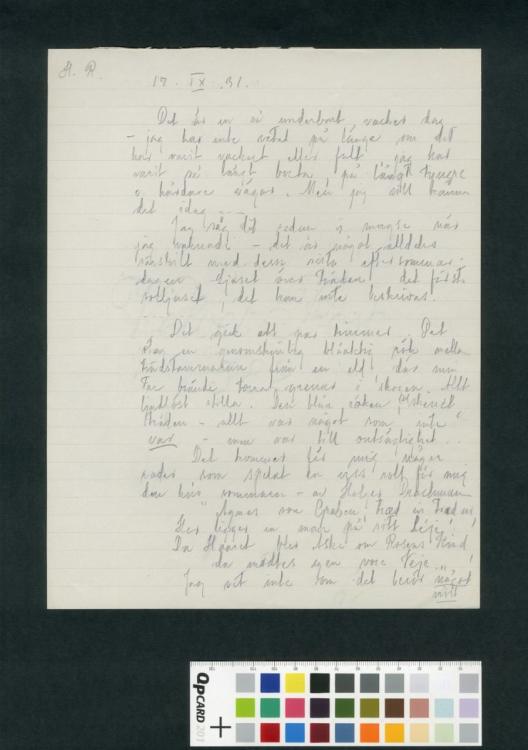 H. R.
17. IX .31.
Det är en så underbart vacker dag
– jag har inte vetat på länge om det
har varit vackert eller fult – jag har
varit på långt borta på långt tyngre
o. hårdare vägar. Men jag vill känna
det idag ...
Jag såg det redan i morse när
jag vaknade – det är något alldeles
särskilt med dessa sista eftersommar-
dagar. Ljuset över träden i det första
solljuset, det kan inte beskrivas.
Det gick ett par timmar. Det
låg en genomskinlig blåaktig rök mellan
trädstammarna från en eld, där man
brände torra grenar i skogen. Allt
ljudlöst stilla. Den blåa röken,
träden – allt var något som inte
var – men var till outsäglighet ...
Det kommer för mig några
rader som spelat en viss roll för mig
den här sommaren – av Holger Drachmann
"Agnes von Graben, træd
Her ligger en mand på sitt Leje!
Da Haaret blev Aske om Rosens Kind
da mødtes igen vore Veje ..."
Jag vet inte om det beror något
mitt